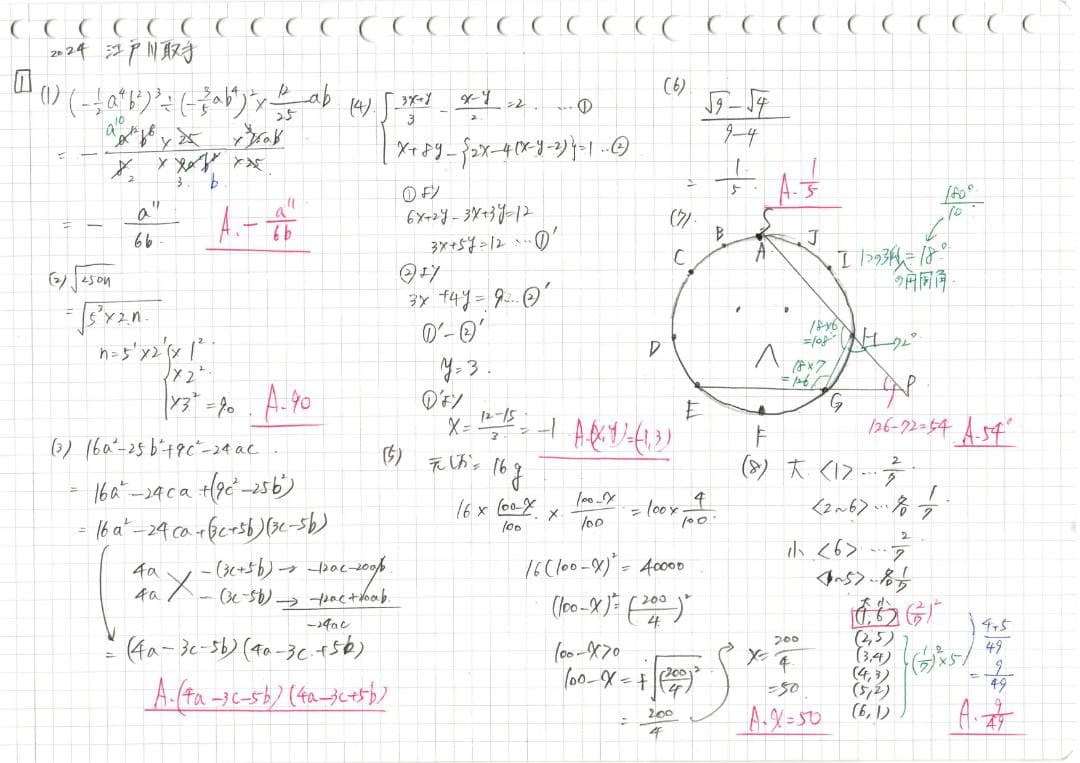 2024 江戸川取手
1
(1) (-1/2 a⁴b²)³ ÷ (-3/5 ab⁴)² × 12/25 ab
a¹⁰
= - a¹²b⁶ × 25 × 12ab / 8 × 9a²b⁸ × 25
2 3 b
= - a¹¹/6b
A. - a¹¹/6b
(2) √250n
= √5³×2×n
n = 5¹×2¹ { ×1²
×2²
×3² = 90
A. 90
(3) 16a²-25b²+9c²-24ac
= 16a²-24ca+(9c²-25b²)
= 16a²-24ca+(3c+5b)(3c-5b)
4a -(3c+5b) → -12ac-20ab
4a -(3c-5b) → -12ac+20ab
-24ac
= (4a-3c-5b)(4a-3c+5b)
A. (4a-3c-5b)(4a-3c+5b)
(4) { 3x+y/3 - x-y/2 = 2 ... ①
x+8y-{2x-4(x-y-2)}=1 ... ②
①より
6x+2y-3x+3y=12
3x+5y=12 ... ①'
②より
3x+4y=9 ... ②'
①'-②'
y=3
①'より
x = 12-15/3 = -1
A. (x,y)=(-1,3)
(5) 元の食塩 = 16g
16 × 100-x/100 × 100-x/100 = 100 × 4/100
16(100-x)² = 40000
(100-x)² = (200/4)²
100-x>0
100-x = +√(200/4)²
= 200/4
x = 200/4
= 50
A. x=50
(6)
√9-√4
9-4
= 1/5
A. 1/5
(7)
S
B
A
J
C
I
D
H
E
G
P
F
180°/10
1つの弧 = 18°
の円周角
18×6
=108°
72°
18×7
=126
126-72=54
A. 54°
(8) 大 <1> ... 2/7
<2~6> ... 各 1/7
小 <6> ... 2/7
<1~5> ... 各 1/7
大 小
(1,6) (2/7)²
(2,5)
(3,4)
(4,3)
(5,2)
(6,1)
(1/7)²×5
4+5/49
= 9/49
A. 9/49